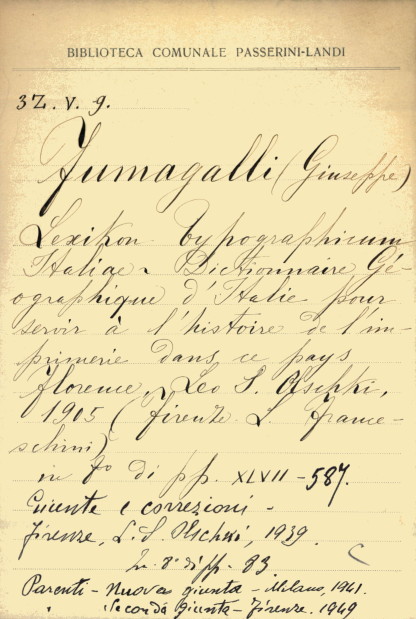 BIBLIOTECA COMUNALE PASSERINI-LANDI
3Z. V. 9.
Fumagalli (Giuseppe)
Lexikon typographicum
Italiae - Dictionnaire Gé-
ographique d'Italie pour
servir à l'histoire de l'im-
primerie dans ce pays
florence, Leo S. Olschki,
1905 (firenze L. France-
schini)
in fo di pp. XLVII - 587.
e correzioni -
Firenze, L. S. Olschki, 1939.
In 8° di pp. 83
Parenti - Nuova giunta - Milano, 1941.
" Seconda giunta - Firenze. 1949